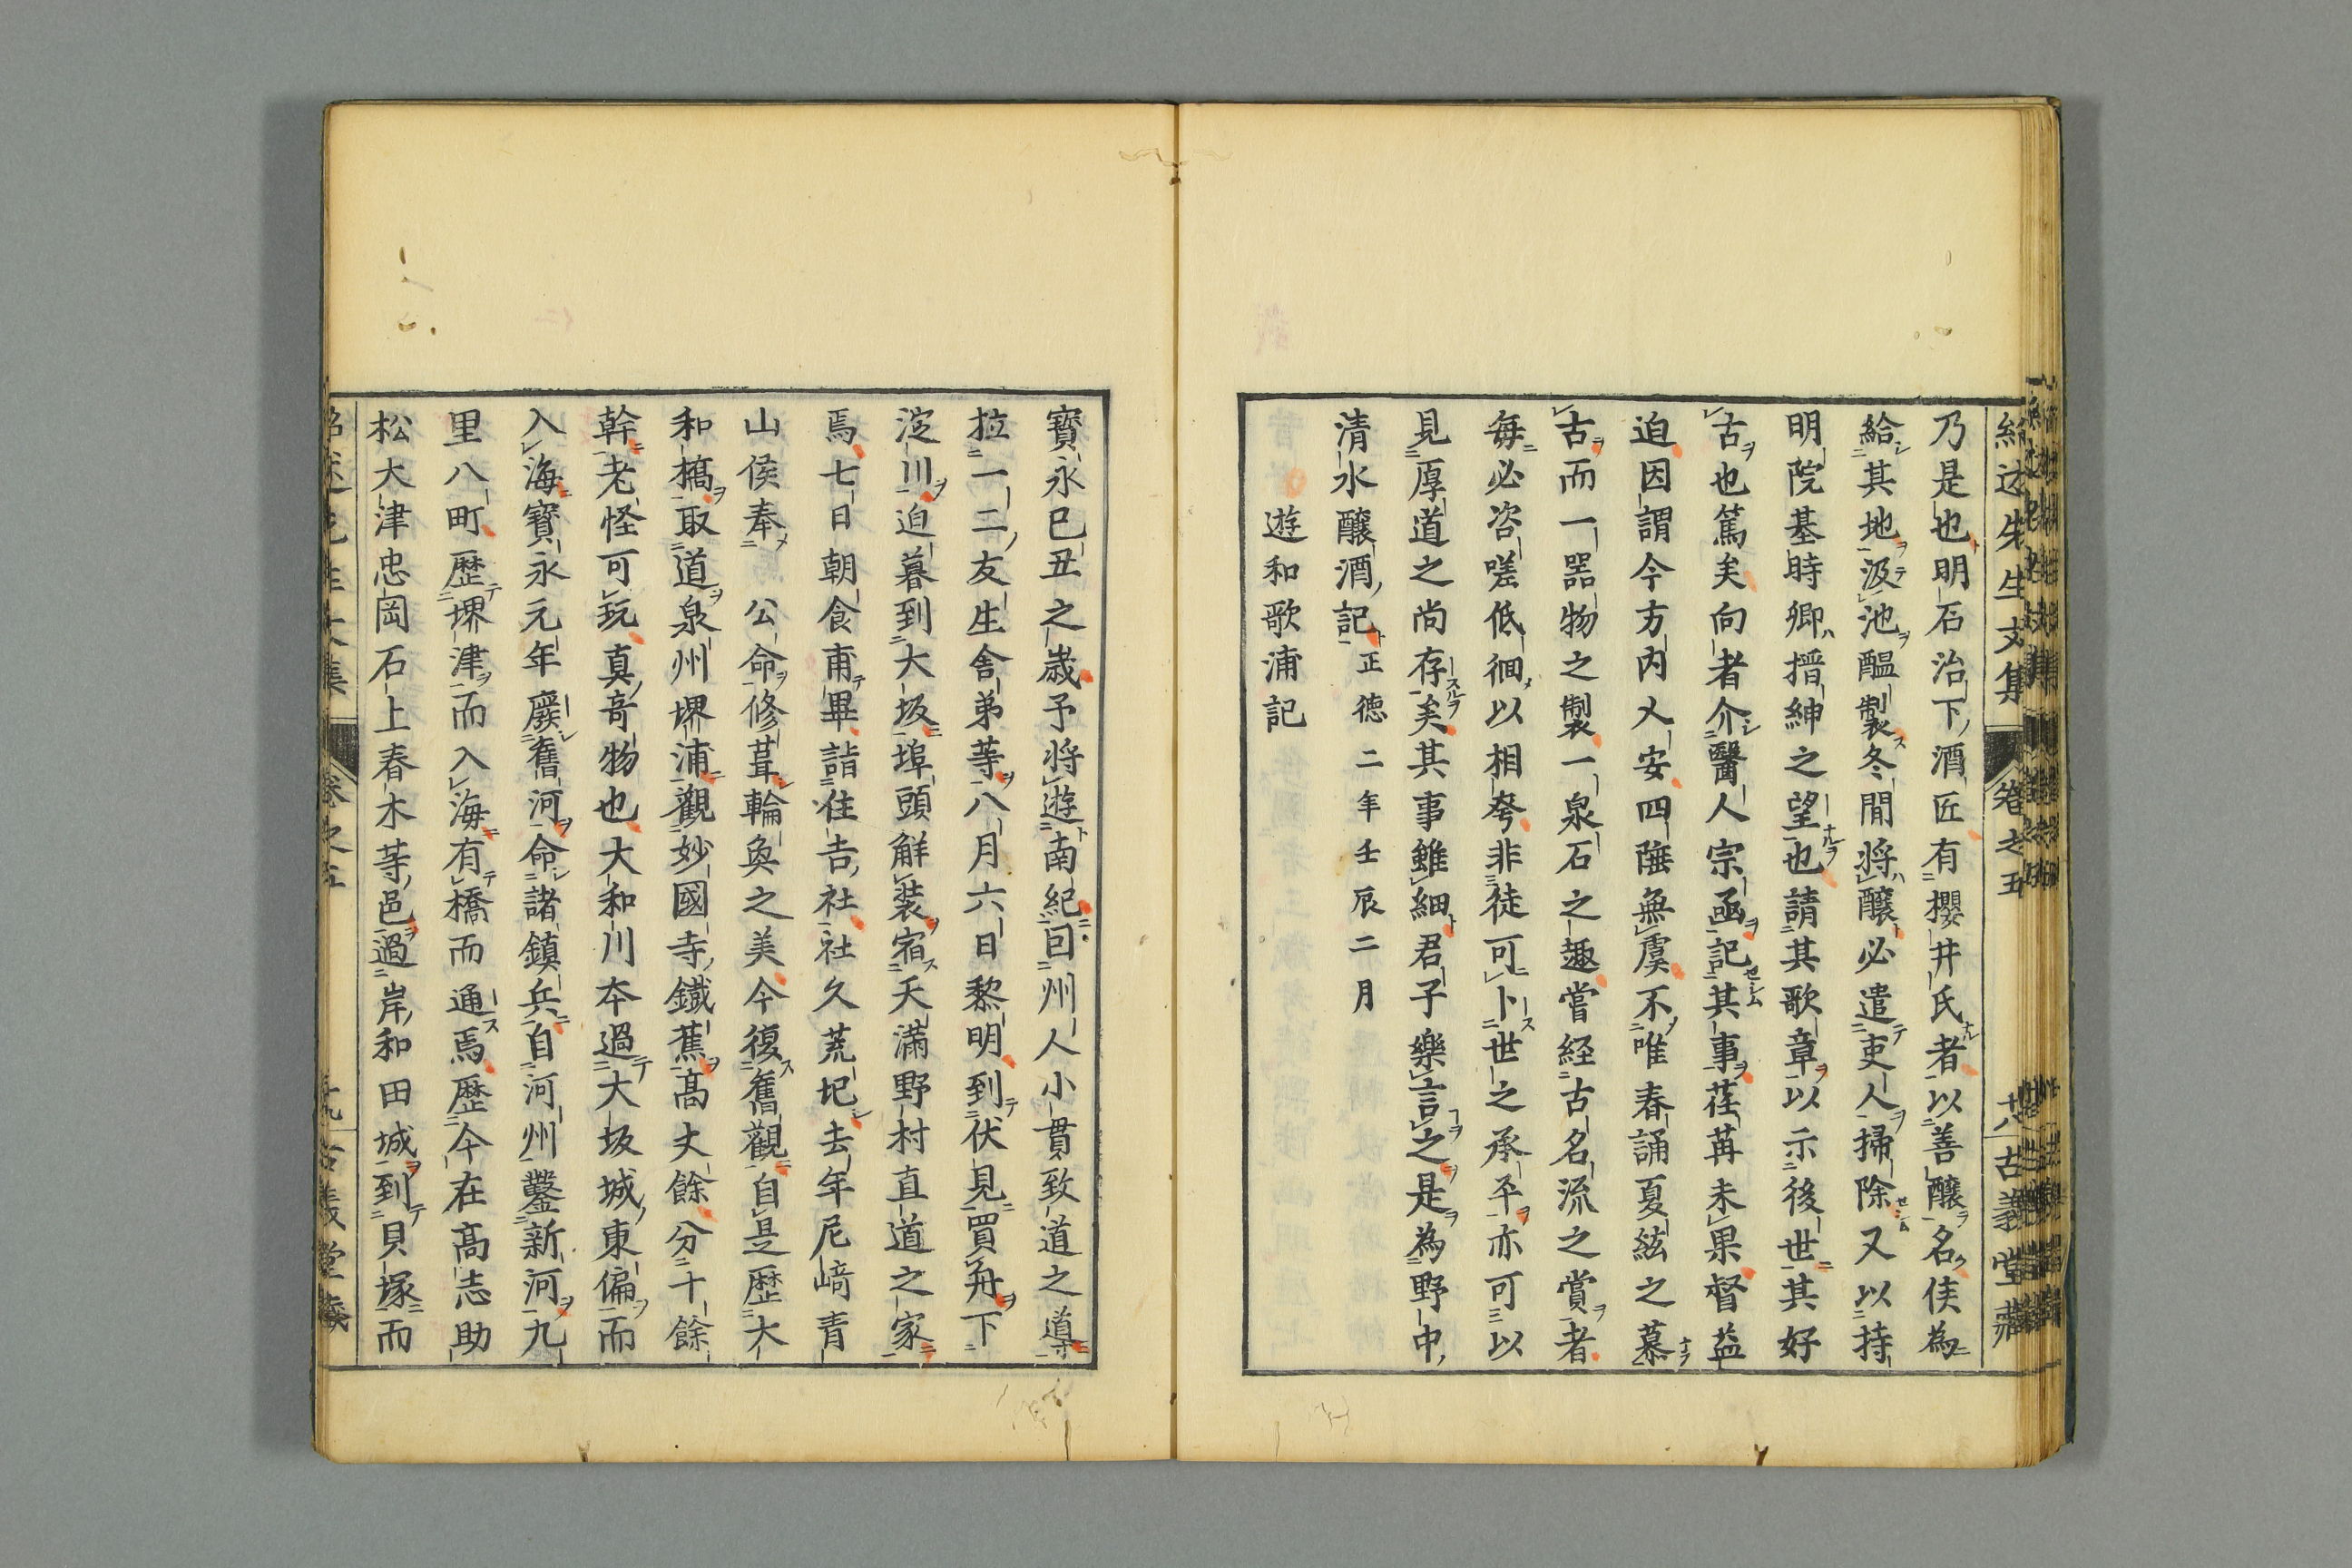 紹述先生文集 卷之五 十八 古義堂藏
乃是也明石治下酒匠有櫻井氏者以善醸名侯為
給其地汲池醞製冬間將醸必遣吏人掃除又以持
明院基時卿搢紳之望也請其歌章以示後世其好
古也篤矣向者介醫人宗函記其事荏苒未果督益
迫因謂今方內乂安四陲無虞不唯春誦夏絃之慕
古而一器物之製一泉石之趣嘗經古名流之賞者
每必咨嗟低徊以相夸非徒可卜世之承平亦可以
見厚道之尚存矣其事雖細君子樂言之是為野中
清水釀酒記 正德二年壬辰二月
遊和歌浦記
寶永己丑之歲予將遊南紀回州人小貫致道之導
拉一二友生舍弟等八月六日黎明到伏見買舟下
淀川迫暮到大坂埠頭解裝宿天滿野村直道之家
焉七日朝食甫畢詣住吉社社久荒圮去年尼﨑青
山侯奉 公命修葺輪奐之美今復舊觀自是歷大
和橋取道泉州堺浦觀妙國寺鐵蕉高丈餘分十餘
幹老怪可玩真竒物也大和川本過大坂城東偏而
入海寶永元年廢舊河命諸鎮兵自河州鑿新河九
里八町歷堺津而入海有橋而通焉歷今在高志助
松大津忠岡石上春木等邑過岸和田城到貝塚而